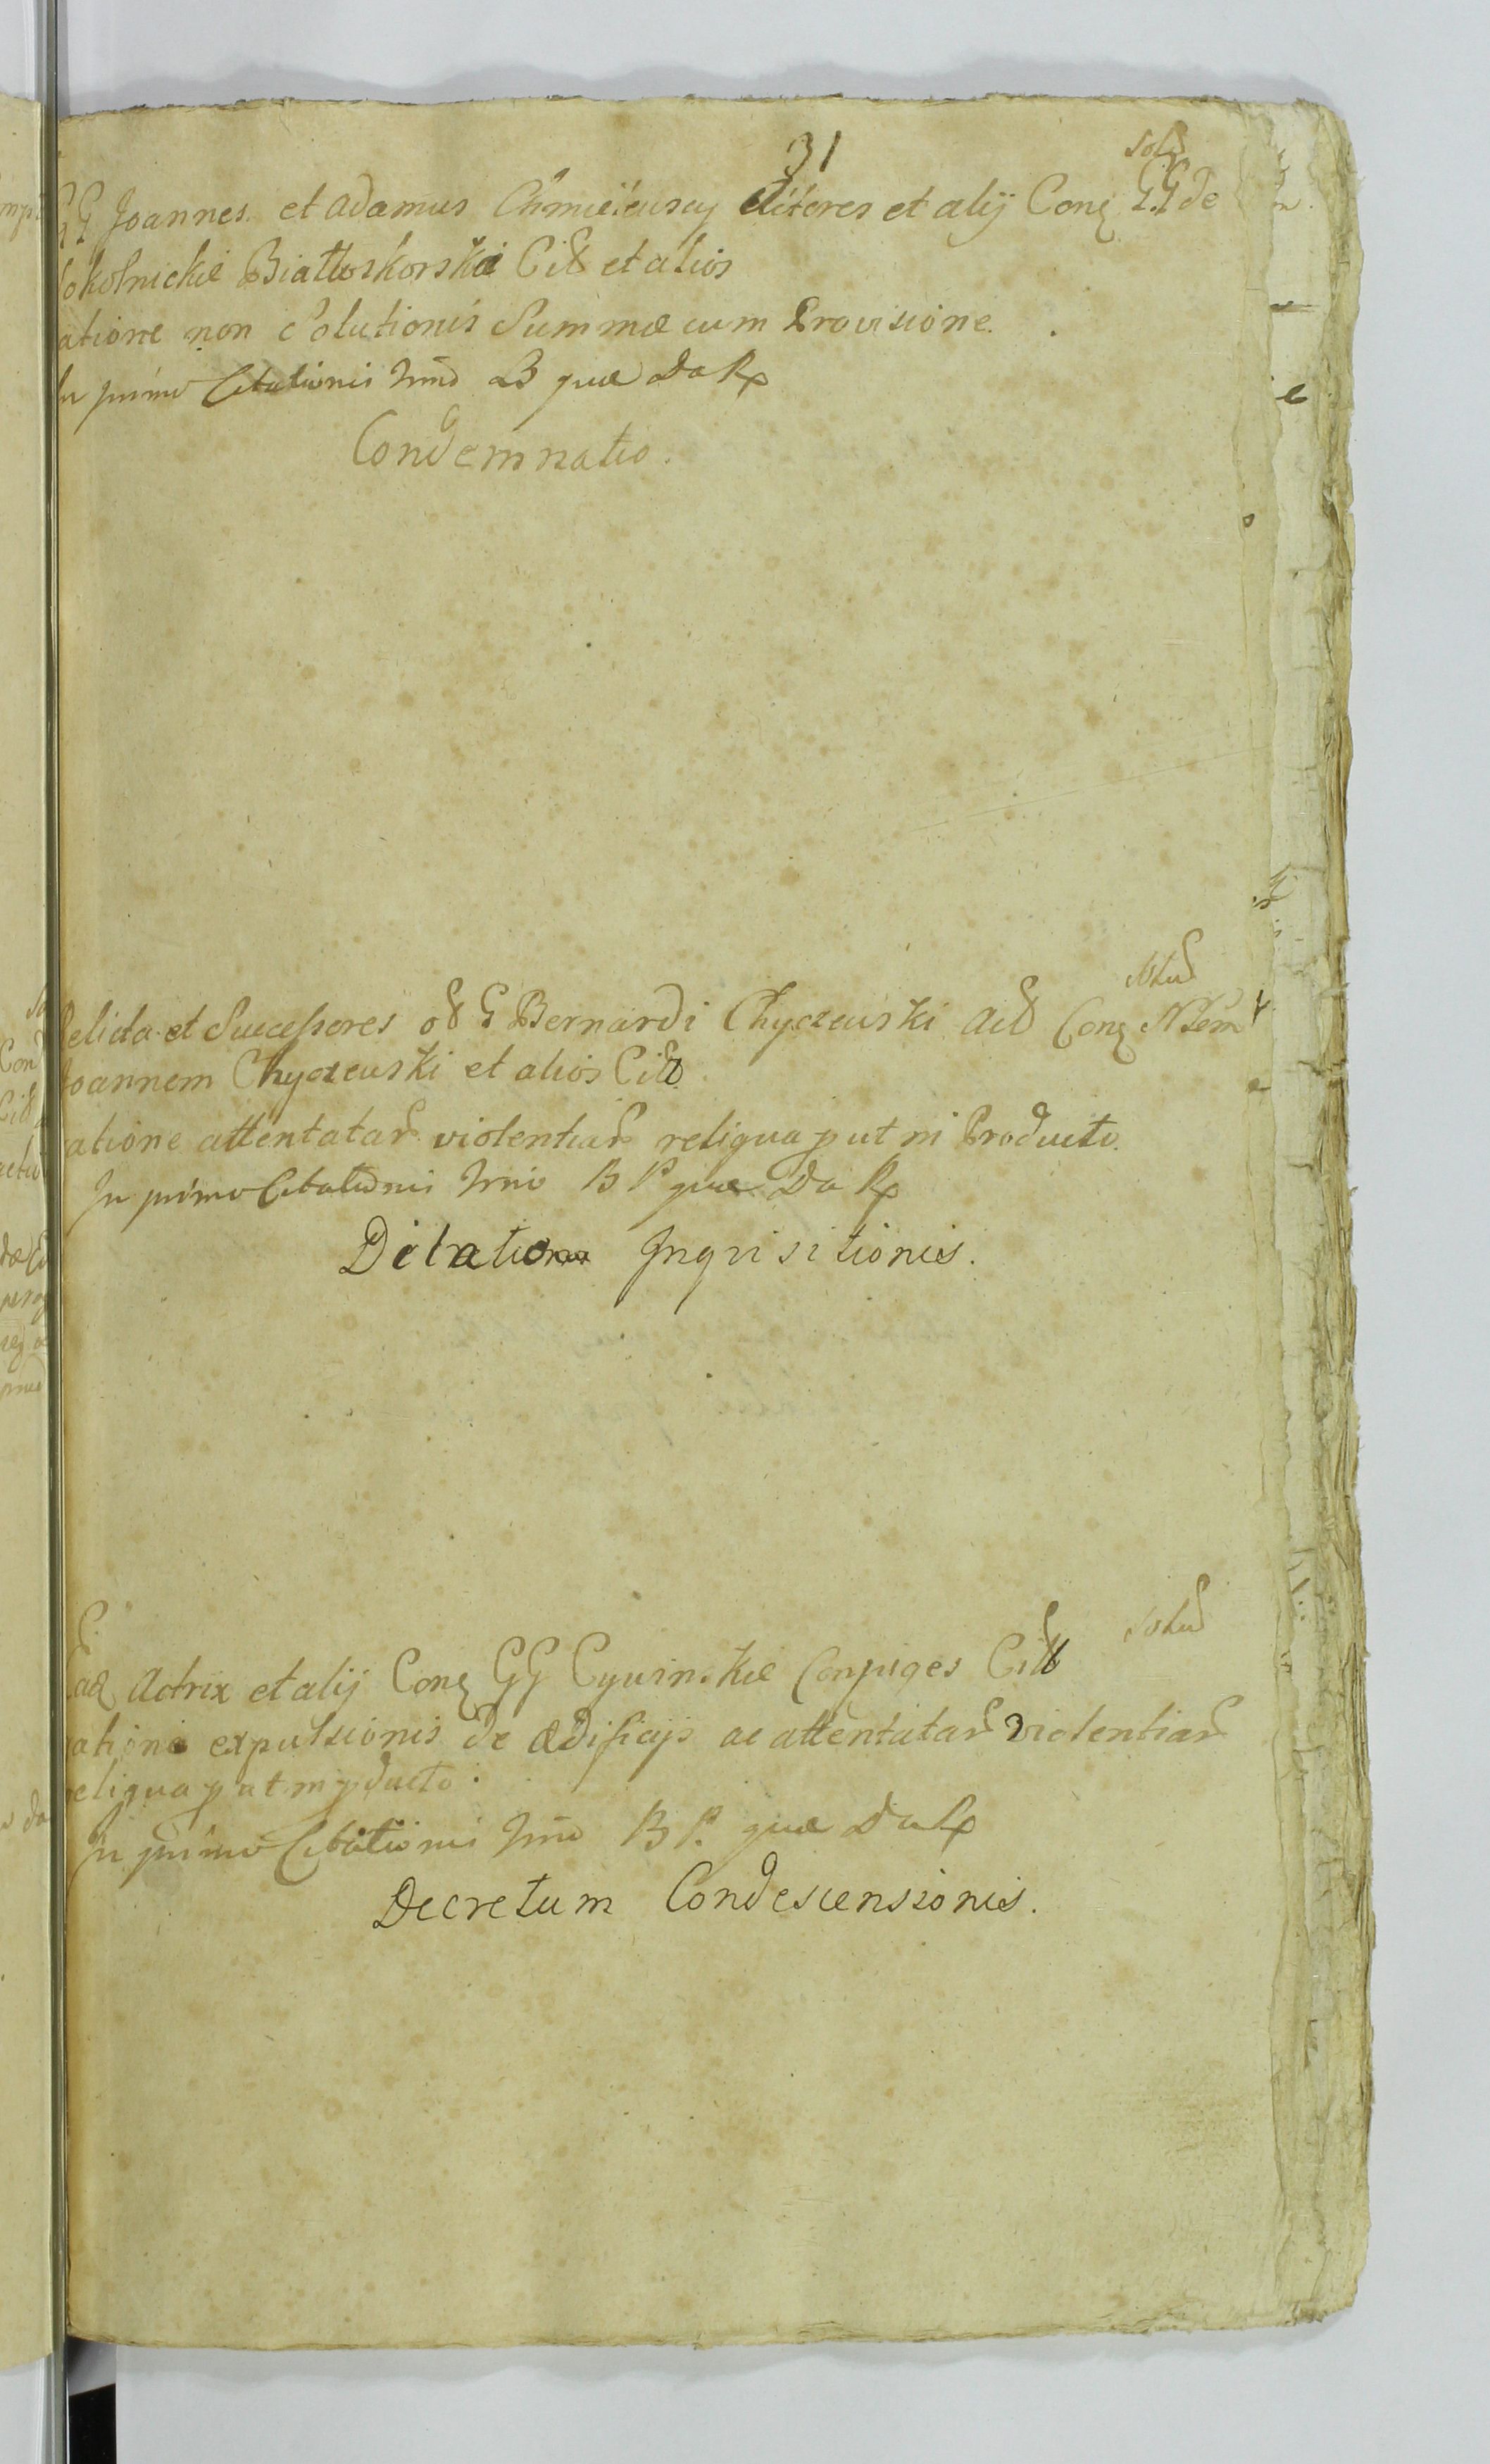 31
Sol
GG Joannes et Adamus Chmielewscy Actores et alij Con GG de
okolnickie Białłoskorskie Cit et alios
atione non Solutionis Summæ cum Provisione.
In primo Citationis quæ Da Rx
Condemnatio.
Solud
elicta et Successores G Bernardi Chyczewski Act Con
Joannem Chyczewski et alios Citt
atione attentatar violentiar reliqua put in Producto.
In primo Citationis B P quæ Da Rx
Dilatio Inquisitionis.
Solud
Actrix et alij Con GG Cywinskie Conjuges Citt
atione expulsionis de ædificijs ac attentatar violentiar
eliqua put in pducto.
In primo Citationis B P. quæ Da Rx
Decretum Condescensionis.